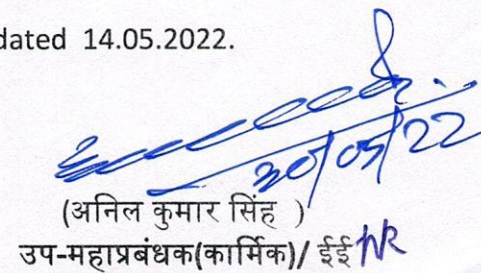 dated 14.05.2022.
30/05/22
(अनिल कुमार सिंह )
उप-महाप्रबंधक(कार्मिक)/ ईई